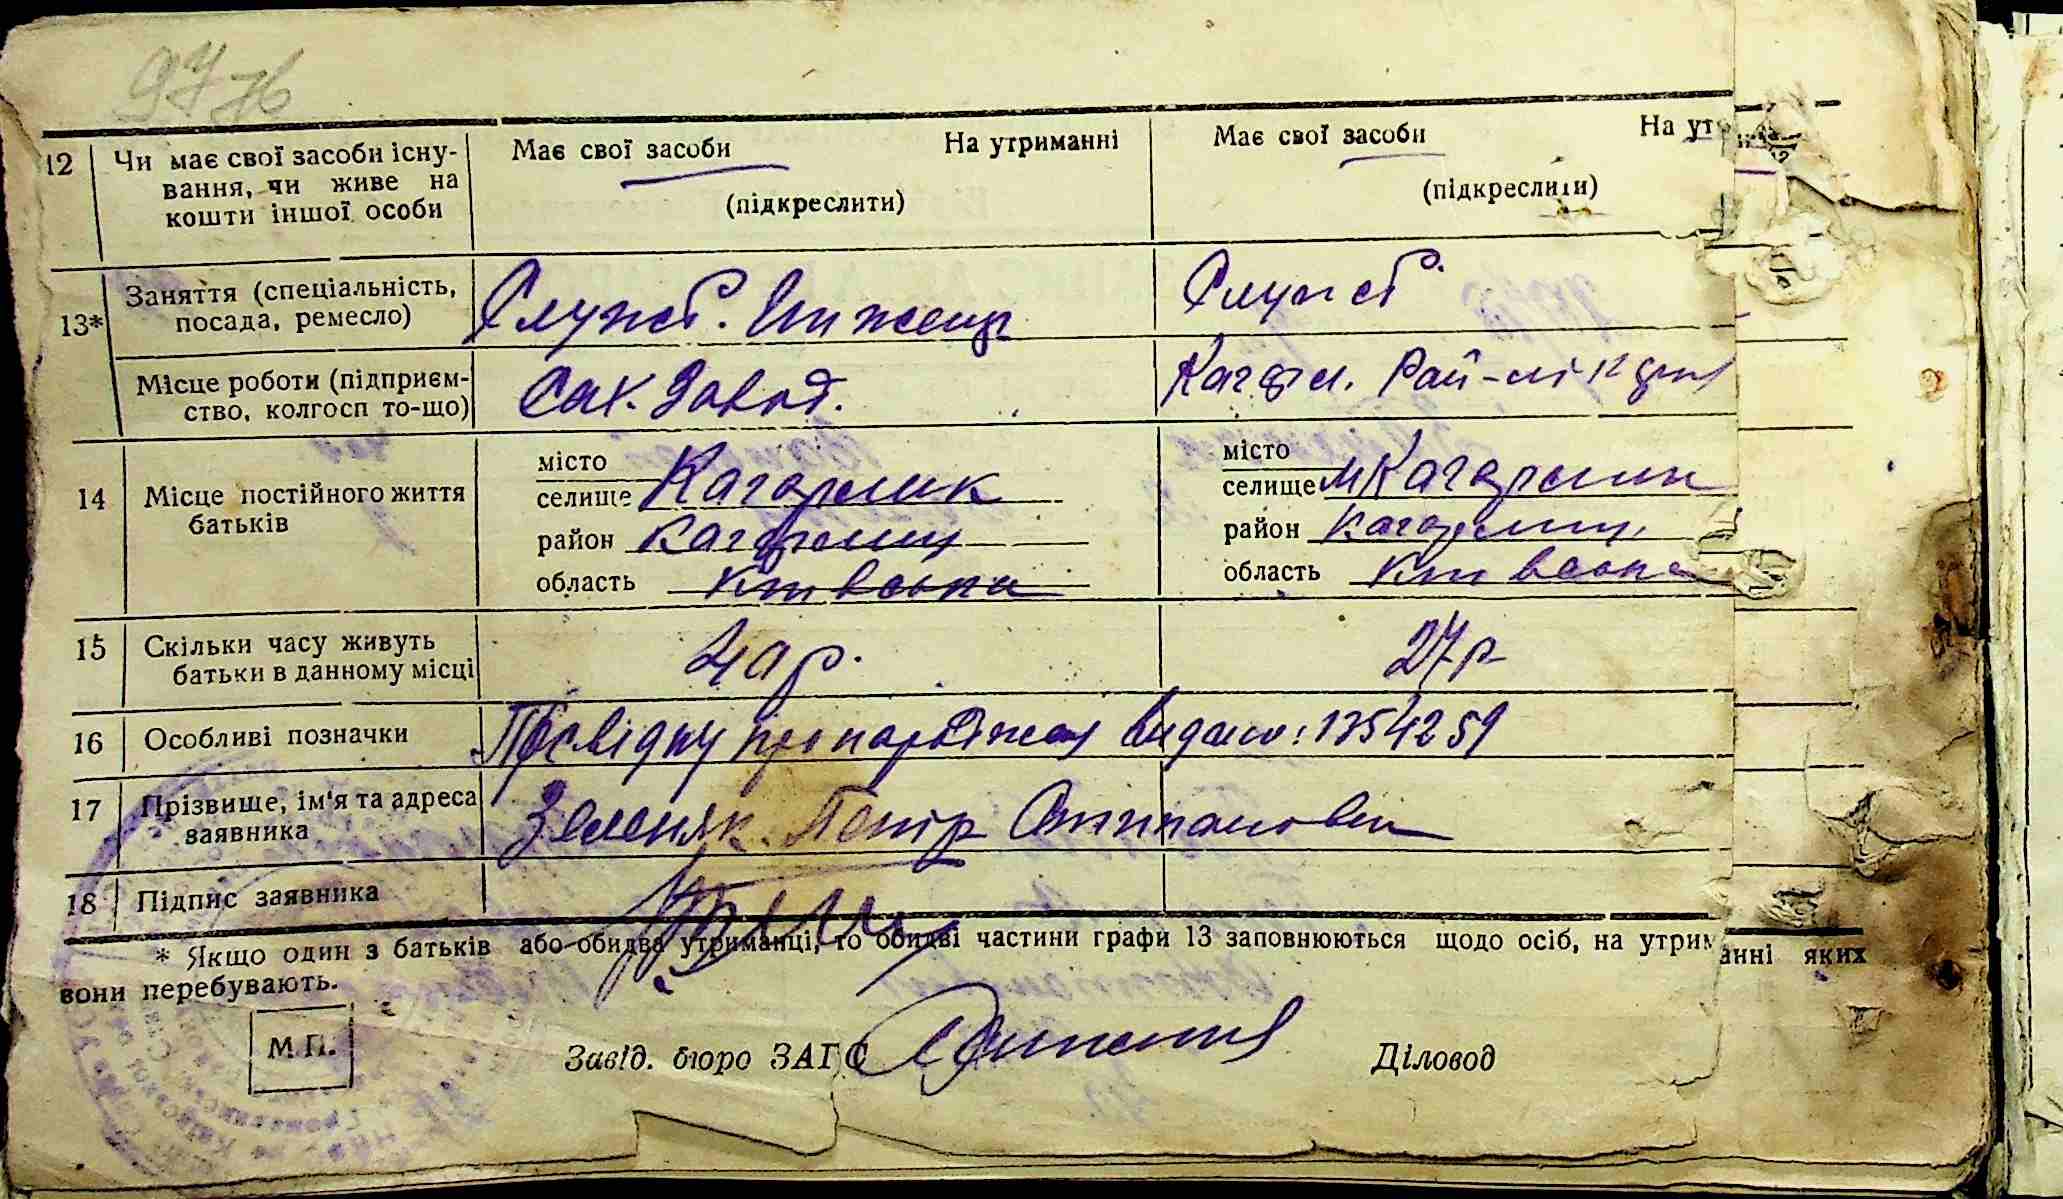 9776
12 Чи має свої засоби існу- Має свої засоби На утриманні Має свої засоби На ут
вання, чи живе на (підкреслити) (підкреслити)
кошти іншої особи
13* Заняття (спеціальність, Службов. Инженер Службов.
посада, ремесло)
Місце роботи (підприєм- Сах. Завод. Кагарл. Рай-лікарня
ство, колгосп то-що)
14 Місце постійного життя місто Кагарлик місто м Кагарлик
батьків селище селище
район Кагарлиц район Кагарлиц.
область Київська область Київська
15 Скільки часу живуть р. 27 р
батьки в данному місці
16 Особливі позначки Посвідку про народження видано: 1354259
17 Прізвище, ім'я та адреса Зеленяк Петір Степанович
заявника
18 Підпис заявника
* Якщо один з батьків або обидва утриманці, то обидві частини графи 13 заповнюються щодо осіб, на утриманні яких
вони перебувають.
М.П. Завід. бюро ЗАГС Діловод